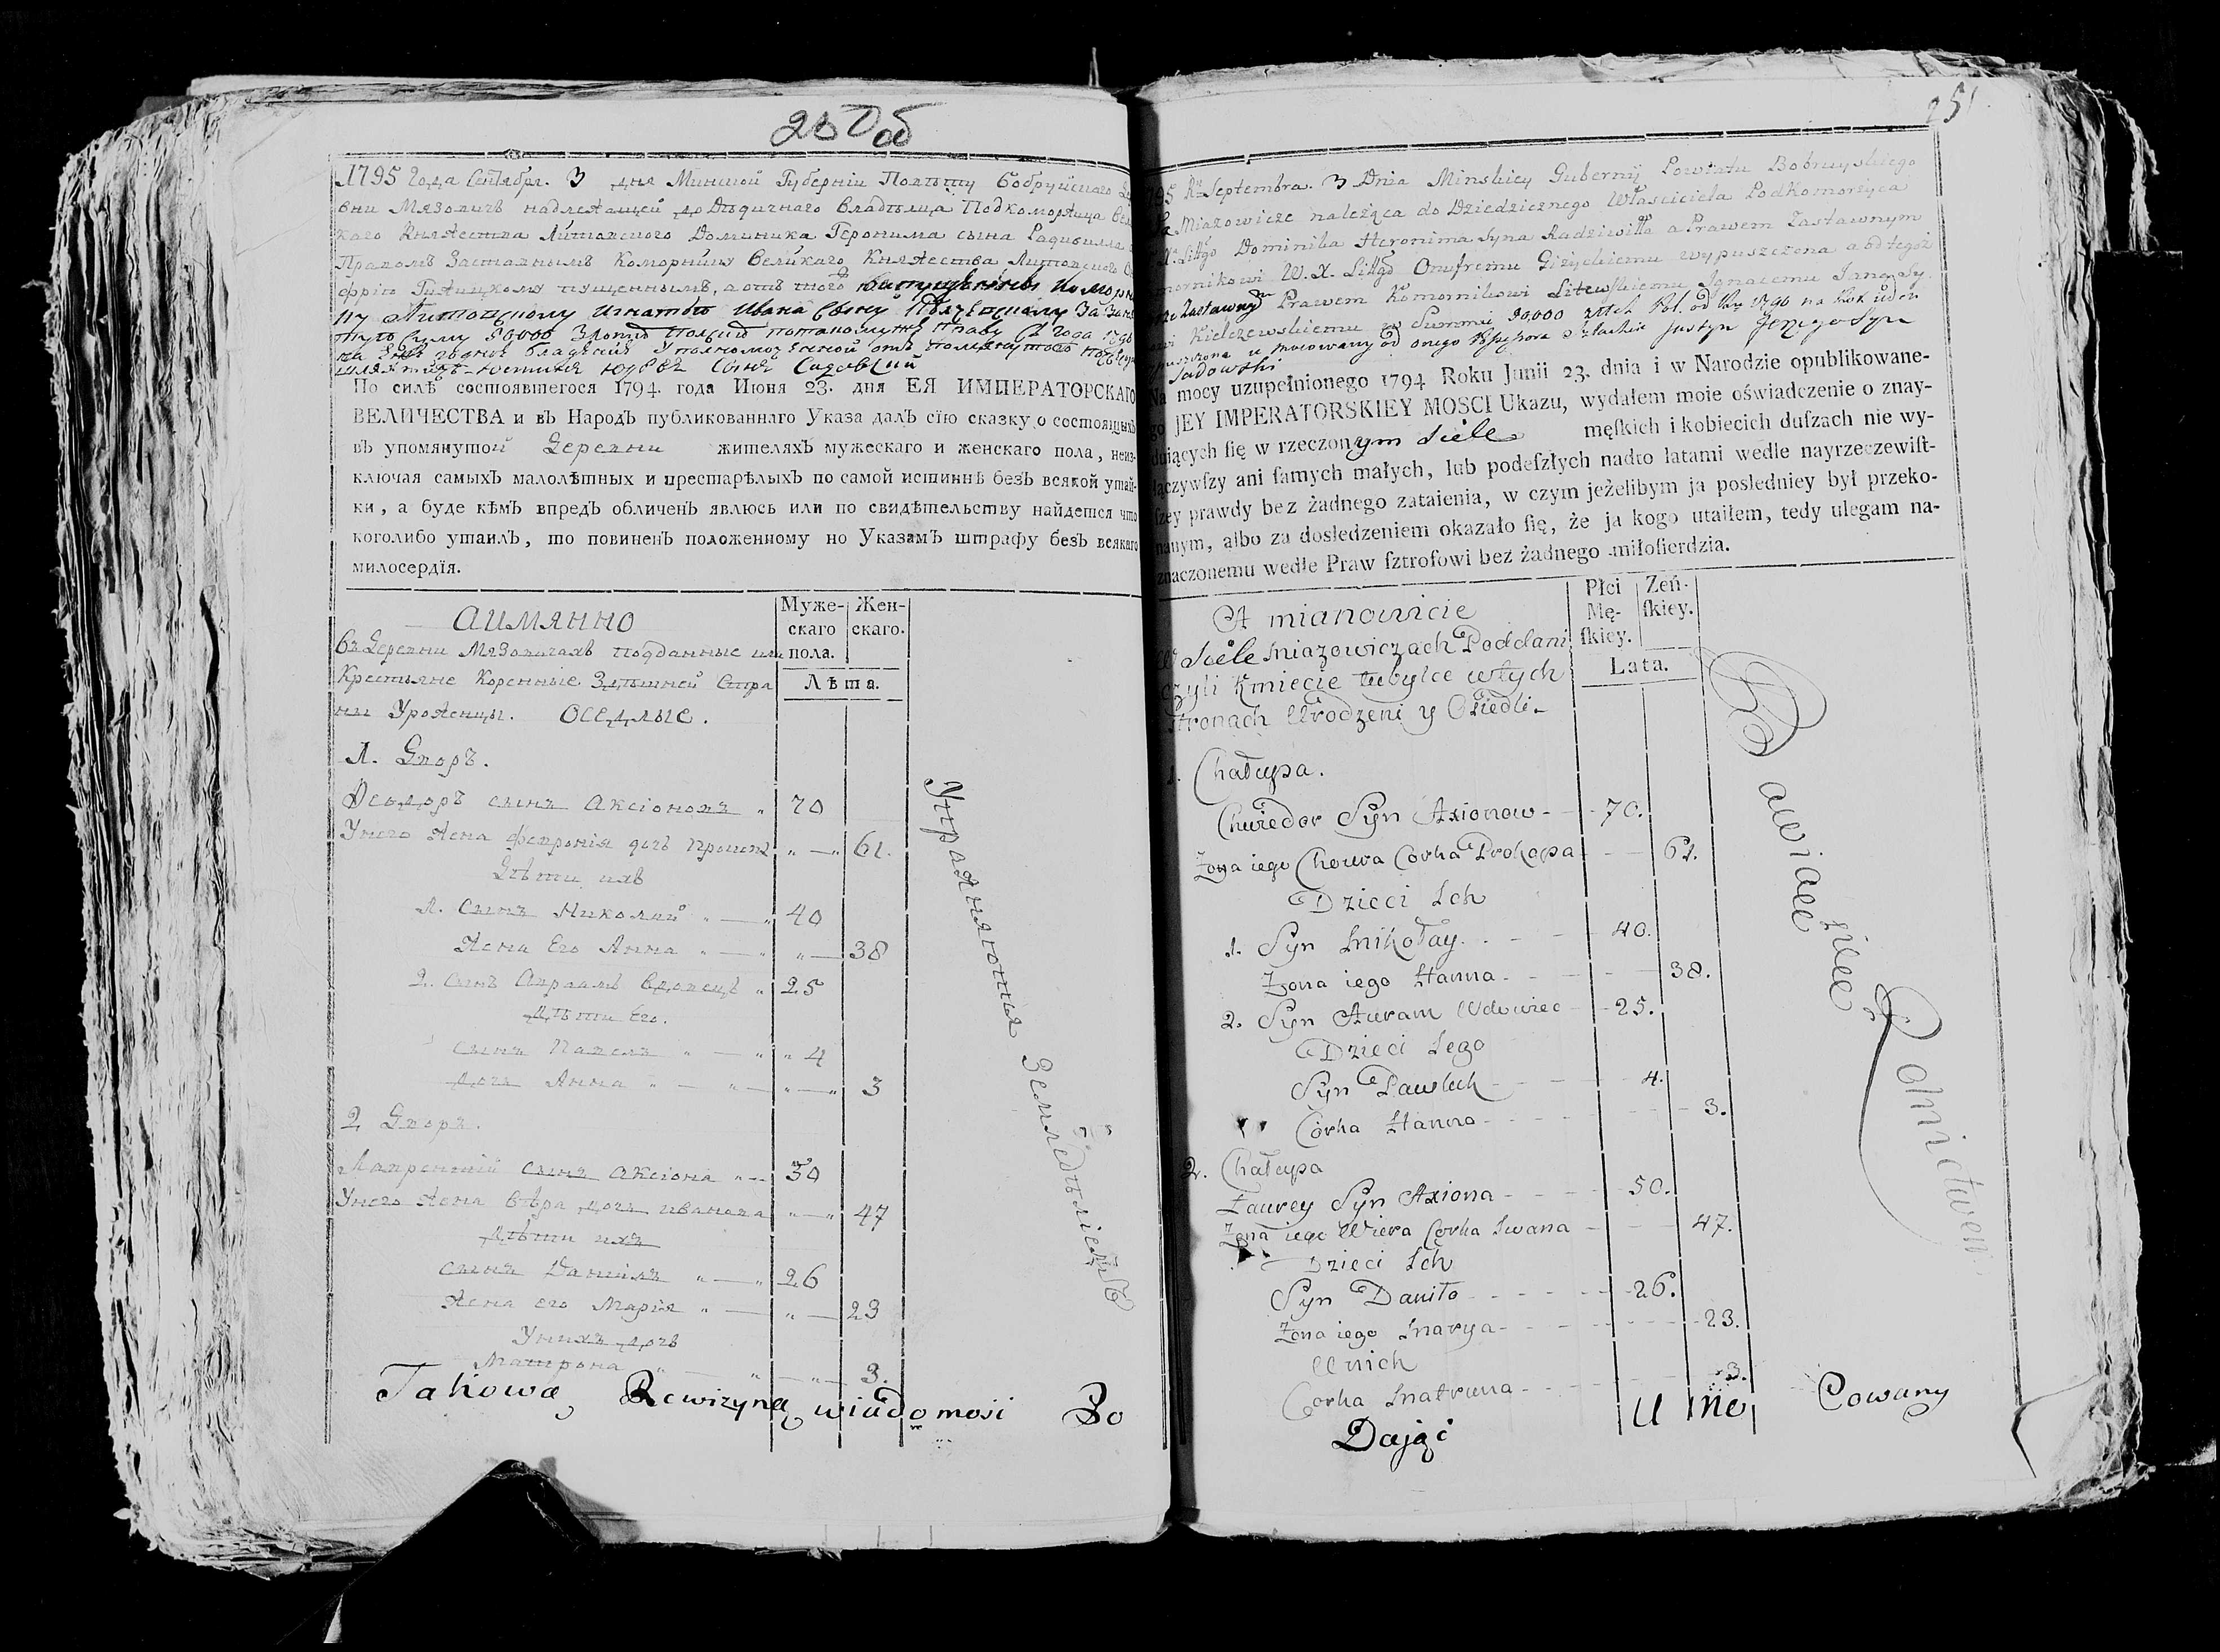 250 об
1795 Года Сентября. 3 дня Минской Губерніи Повѣту Бобруйскаго
вни Мязовичъ надлежащей до Дѣдичнаго Владѣльца Подкоморжица
каго Княжества Литовского Доминика Геронима сына Радивилла
Правомъ Заставнымъ Коморнику Великаго Княжества Литовского
пущеннымъ, а отъ того
Литовскому Игнатію Ивана Сыну
Суму 30,000 Злотъ
По силѣ состоявшегося 1794. года Июня 23. дня ЕЯ ИМПЕРАТОРСКАГО
ВЕЛИЧЕСТВА и въ Народъ публикованнаго Указа далъ сїю сказку о состоящихъ
въ упомянутой Деревни жителяхъ мужескаго и женскаго пола, неиз-
ключая самыхъ малолѣтныхъ и престарѣлыхъ по самой истиннѣ безъ всякой утай-
ки, а буде кѣмъ впредъ обличенъ явлюсь или по свидѣтельству найдется что
коголибо утаилъ, то повиненъ положенному по Указамъ штрафу безъ всякаго
милосердїя.
АИМЯННО
Въ Деревни Мязовичахъ подданные или
Крестьяне Коренные Здѣшней Стра
ны Уроженцы. Оседлые.
Муже-
скаго
пола.
Жен-
скаго.
Лѣта.
1. Дворъ.
Ѳеодоръ сынъ Аксіоновъ 70
Унего жена Февронія дочь Прокопа 61.
Дѣти ихъ
1. Сынъ Николай 40
Жена Его Анна 38
2. Сынъ Авраамъ вдовецъ 25
Дѣти Его.
сынъ Павелъ 4
дочь Анна 3
2 Дворъ.
Лаврентій сынъ Аксіона 50
Унего жена Вѣра дочь Иванова 47
Дѣти ихъ
сынъ Даніилъ 26
Жена его Марія 23
Унихъ дочь
Матрона 3.
Упражняются Земледѣліемъ
Takową Rewizyną wiadomość Po
251
1795 Rku Septembra. 3 Dnia Minskiey Gubernij Powiatu Bobruyskiego
Miazowicze należąca do Dziedzicznego Właściciela Podkomorzyca
W. X. Littgo Dominika Heronima Syna Radziwiłła a Prawem Zastawnym
mornikowi W. X. Littgo Onufremu Giżyckiemu wypuszczona a od tegoż
Zastawnym Prawem Komornikowi Litewskiemu Ignacemu Jana Sy
Kielczewskiemu w Summie 30,000 złłch Pol. od Rku 1790 na Rok jeden
umocowany od onego Szlachcic Justyn Jerzego Syn
Sadowski
Na mocy uzupełnionego 1794 Roku Junii 23. dnia i w Narodzie opublikowane-
go JEY IMPERATORSKIEY MOSCI Ukazu, wydałem moie oświadczenie o znay-
duiących ſię w rzeczonym Siele męſkich i kobiecich duſzach nie wy-
łączywſzy ani ſamych małych, lub podeſzłych nadto latami wedle nayrzeczewiſt-
ſzey prawdy bez żadnego zataienia, w czym jeżelibym ja posledniey był przeko-
nanym, albo za dosledzeniem okazało ſię, że ja kogo utaiłem, tedy ulegam na-
znaczonemu wedle Praw ſztrofowi bez żadnego miłoſierdzia.
A mianowicie
W Siele Miazowiczach Poddani
czyli Kmiecie tubylce wtych
Stronach Urodzeni y Osiedli
Płci
Mę-
ſkiey.
Zeń-
ſkiey.
Lata.
1. Chałupa.
Chwiedor Syn Axionow 70.
Żona iego Chowra Corka Prokopa 61.
Dzieci Ich
1. Syn Mikołay. 40.
Żona iego Hanna 38.
2. Syn Auram Wdowiec 25.
Dzieci Iego
Syn Pawluk 4.
Corka Hanna 3.
2. Chałupa
Ławrey Syn Axiona 50.
Żona iego Wiera Corka Iwana 47.
Dzieci Ich
Syn Daniło 26.
Żona iego Marya 23.
U nich
Corka Matruna 3.
Bawiące się Rolnictwem
Dając Umocowany